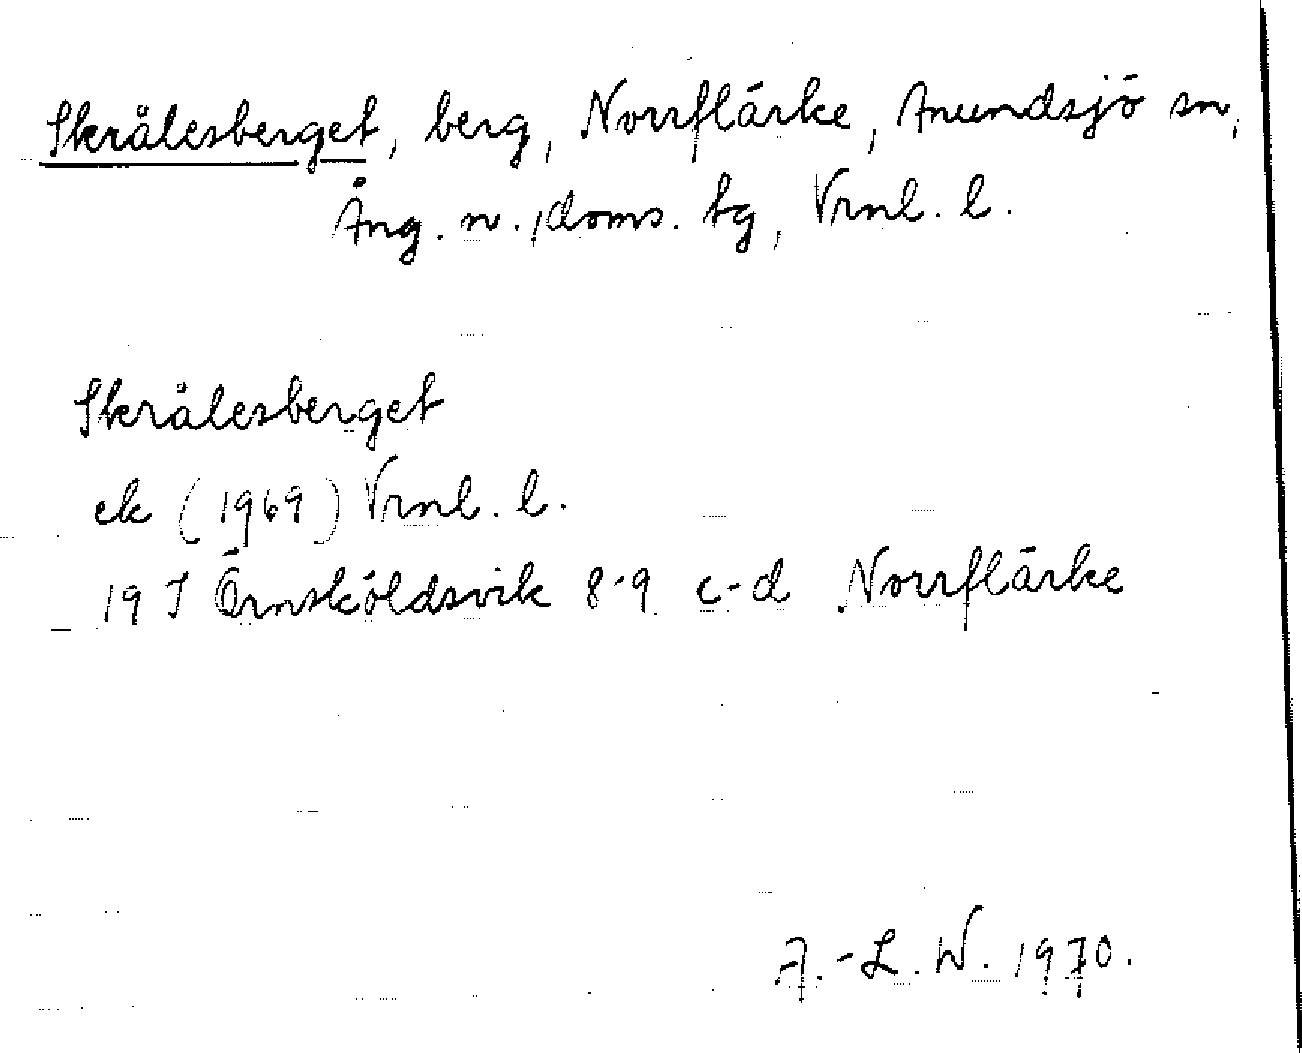 Skrålesberget, berg, Norrflärke, Anundsjö sn,
Ång. n. doms. tg, Vrnl. l.
Skrålesberget
ek (1969) Vrnl. l.
19 J Örnsköldsvik 8-9 c-d Norrflärke
A.-L. W. 1970.